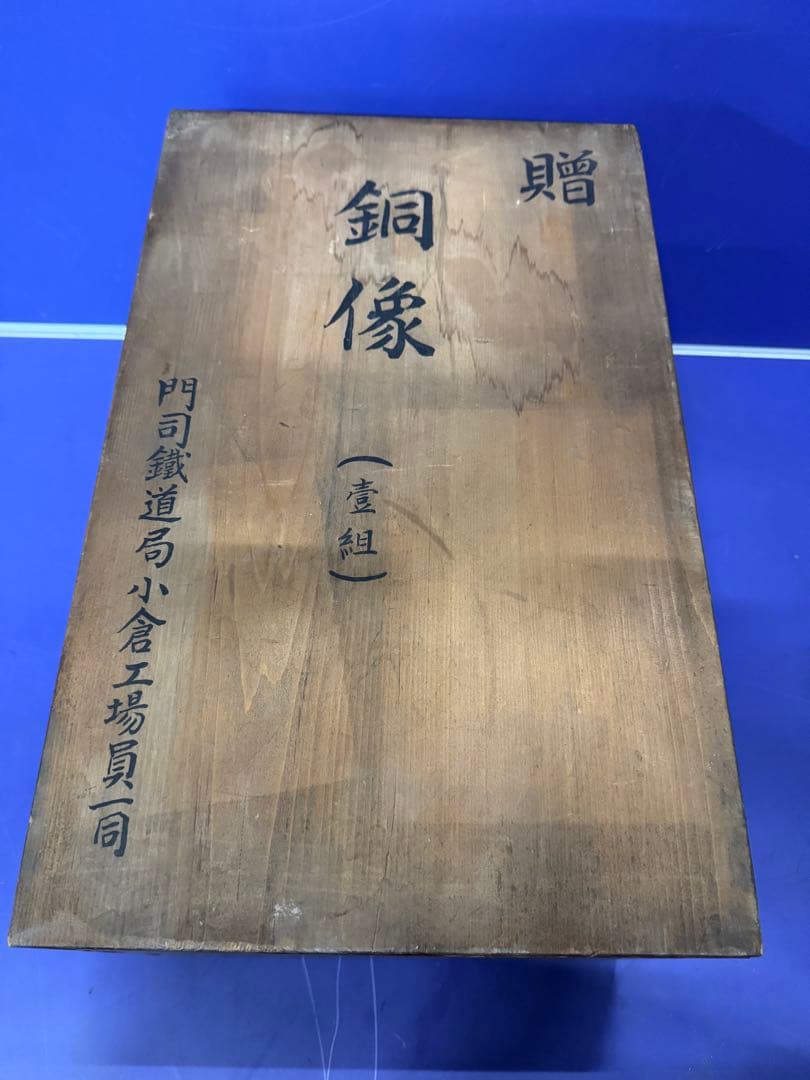 贈
銅像
(壹組)
門司鐵道局小倉工場員一同